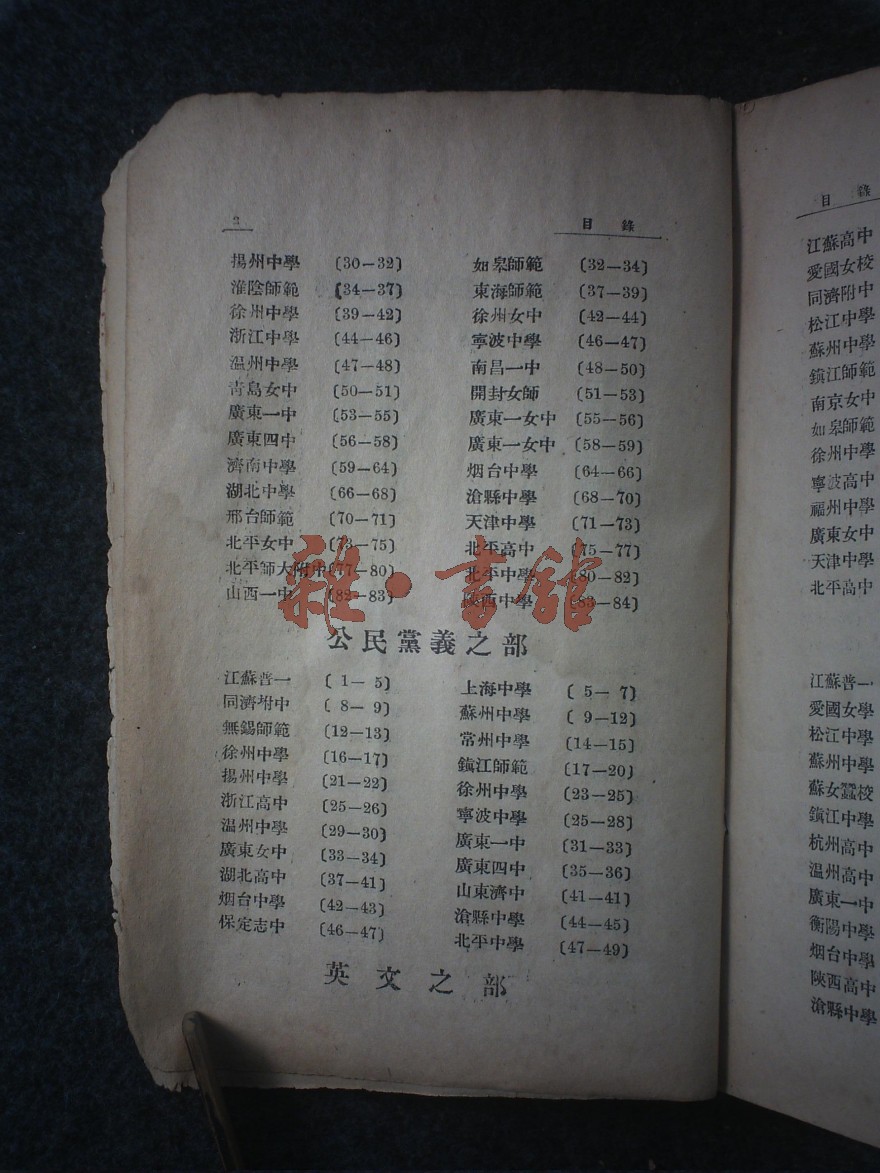 2 目錄
揚州中學 〔30—32〕 如皋師範 〔32—34〕
淮陰師範 〔34—37〕 東海師範 〔37—39〕
徐州中學 〔39—42〕 徐州女中 〔42—44〕
浙江中學 〔44—46〕 寧波中學 〔46—47〕
温州中學 〔47—48〕 南昌一中 〔48—50〕
青島女中 〔50—51〕 開封女師 〔51—53〕
廣東一中 〔53—55〕 廣東一女中 〔55—56〕
廣東四中 〔56—58〕 廣東一女中 〔58—59〕
濟南中學 〔59—64〕 烟台中學 〔64—66〕
湖北中學 〔66—68〕 滄縣中學 〔68—70〕
邢台師範 〔70—71〕 天津中學 〔71—73〕
北平女中 〔73—75〕 北平高中 〔75—77〕
北平師大附中〔77—80〕 北平中學 〔80—82〕
山西一中 〔82—83〕 陝西中學 〔83—84〕
雜·書館
公民黨義之部
江蘇普一 〔 1— 5〕 上海中學 〔 5— 7〕
同濟坿中 〔 8— 9〕 蘇州中學 〔 9—12〕
無錫師範 〔12—13〕 常州中學 〔14—15〕
徐州中學 〔16—17〕 鎭江師範 〔17—20〕
揚州中學 〔21—22〕 徐州中學 〔23—25〕
浙江高中 〔25—26〕 寧波中學 〔25—28〕
温州中學 〔29—30〕 廣東一中 〔31—33〕
廣東女中 〔33—34〕 廣東四中 〔35—36〕
湖北高中 〔37—41〕 山東濟中 〔41—41〕
烟台中學 〔42—43〕 滄縣中學 〔44—45〕
保定志中 〔46—47〕 北平中學 〔47—49〕
英文之部
目錄
江蘇高中
愛國女校
同濟附中
松江中學
蘇州中學
鎭江師範
南京女中
如皋師範
徐州中學
寧波高中
福州中學
廣東女中
天津中學
北平高中
江蘇普一
愛國女學
松江中學
蘇州中學
蘇女蠶校
鎭江中學
杭州高中
温州高中
廣東一中
衡陽中學
烟台中學
陝西高中
滄縣中學